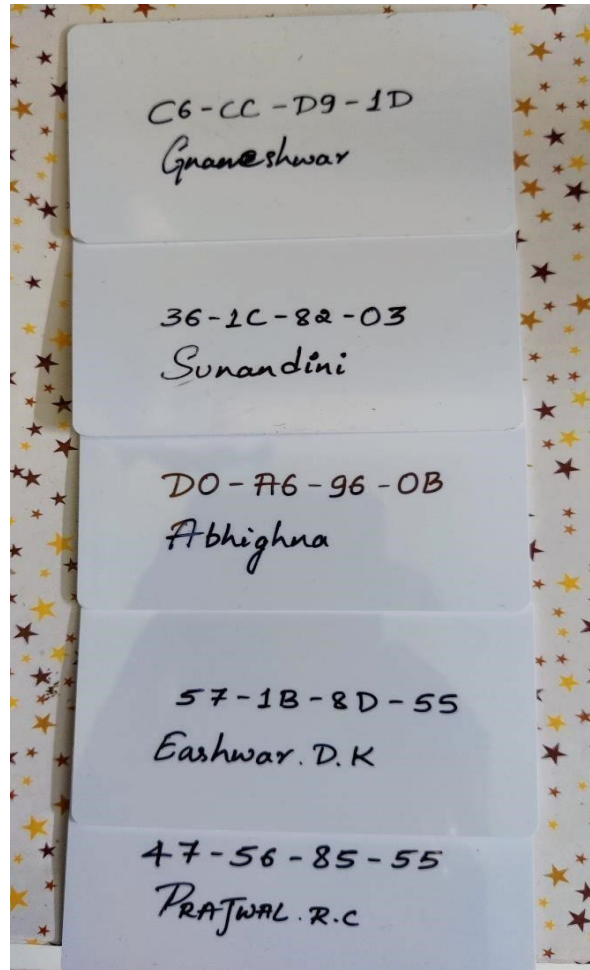 C6-CC-D9-1D
Gnaneshwar
36-1C-82-03
Sunandini
D0-A6-96-0B
Abhighna
57-1B-8D-55
Eashwar.D.K
47-56-85-55
PRAJWAL.R.C